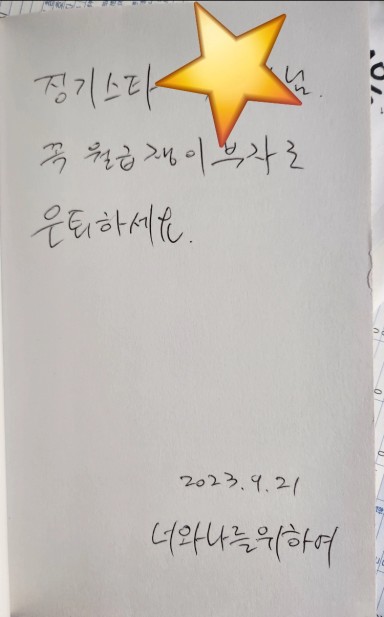 정기스타 님.
꼭 월급쟁이부자로
은퇴하세요.
2023.9.21
너와나를위하여